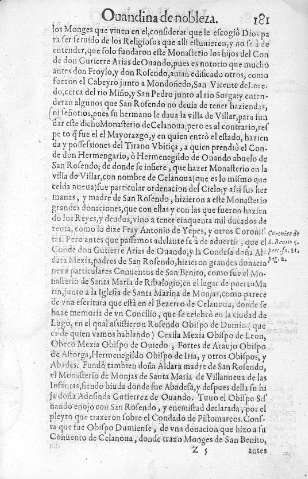 Ouandina de nobleza. 181
los Monges que viuen en el, considerar que le escogiò Dios pa
ra ser seruido de los Religiosos que alli estuuieren, y no se à de
entender, que solo fundaron este Monasterio los hijos del Con
de don Gutierre Arias de Ouando, pues es notorio que mucho
antes don Froylo, y don Rosendo, auian edificado otros, como
fueron el Cabeyro junto a Mondoñedo, San Vicente del
do, cerca del rio Miño, y San Pedro junto al rio Sorgay entien
deran algunos que San Rosendo no deuia de tener haziendas,
ni señorios, pues su hermano le daua la villa de Villar, para fun
dar este dicho Monasterio de Celanoua, pero es al contrario, res
peto que el Mayorazgo, y en quien entrò el estado, hazien
da y possessiones del Tirano Vbitiça, a quien prendiò el Con
de don Hermengario, ò Hermenegildo de Ouando abuelo de
San Rosendo, de donde se insiere, que hazer Monasterio en la
villa de Villar, con nombre de Celanoua (que es lo mismo que
celda nueua) fue particular ordenacion del Cielo y assi sus her
manos, y madre de San Rosendo, hizieron a este Monasterio
grandes donaciones, que con ellas, y con las que fueron hazien
do los Reyes, y deudos, vino a tener cinquenta mil ducados de
renta, como lo dize Fray Antonio de Yepes, y otros Coronis
tas. Pero antes que passemos adelante se à de aduertir, que el
Conde don Gutierre Arias de Ouando, y la Condesa doña Al
data Mexia, padres de San Rosendo, hizieron grandes donacio
nes a particulares Conuentos de San Benito, como fue el Mo
nasterio de Santa Maria de Ribalogio, en el lugar de puerto Ma
rin, junto a la Iglesia de Santa Marina de Monjar, como parece
de vna escritura que està en el Bezerro de Celanoua, donde se
haze memoria de vn Concilio, que se celebrò en la ciudad de
Lugo, en el qual assistieron Rosendo Obispo de Dumio, (que
es de quien vamos hablando) Cexila Mexia Obispo de Leon,
Obeco Mexia Obispo de Ouiedo, Fortes de Araujo Obispo
de Astorga, Hermenegildo Obispo de Iria, y otros Obispos, y
Abades. Fundò tambien doña Aldara madre de San Rosendo,
el Monasterio de Monjas de Santa Maria de Villanueua de las
Infantas, siendo biuda donde fue Abadesa, y despues della su hi
ja doña Adosinda Gutierrez de Ouando. Tuuo el Obispo Sis
nando enojo con San Rosendo, y enemistad declarada, por el
pleyto que traxeron sobre el Condado de Páslomarcos. Cons
ta que fue Obispo Dumiense, de vna donacion que hizo a su
Conuento de Celanoua, donde traxo Monges de San Benito,
Z 5 antes
Coronica de
S. Benito